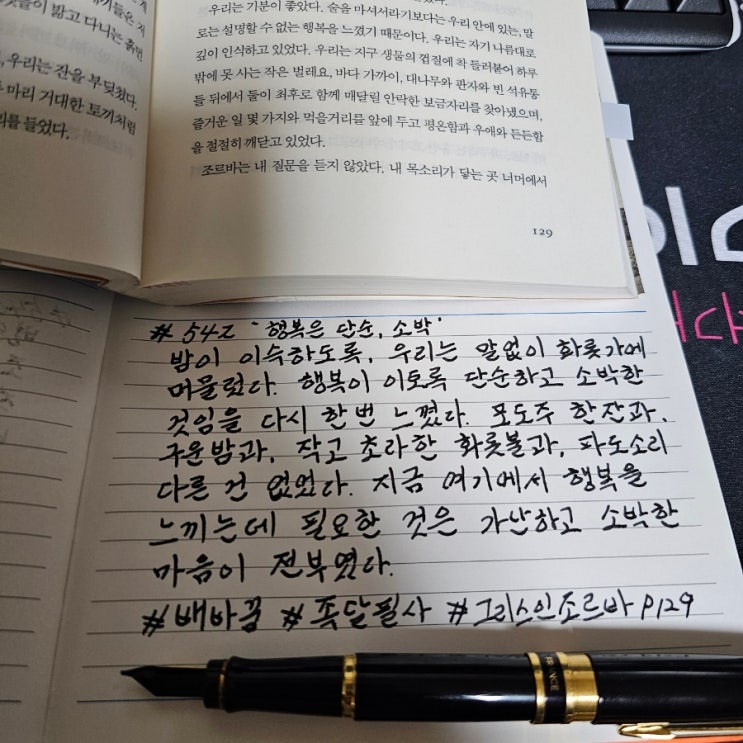 들이 밝고 다니는 흙먼
우리는 잔을 부딪쳤다.
마리 거대한 토끼처럼
를 들었다.
우리는 기분이 좋았다. 술을 마셔서라기보다는 우리 안에 있는, 말
로는 설명할 수 없는 행복을 느꼈기 때문이다. 우리는 자기 나름대로
깊이 인식하고 있었다. 우리는 지구 생물의 껍질에 착 들러붙어 하루
밖에 못 사는 작은 벌레요, 바다 가까이, 대나무와 판자와 빈 석유통
들 뒤에서 둘이 최후로 함께 매달릴 안락한 보금자리를 찾아냈으며,
즐거운 일 몇 가지와 먹을거리를 앞에 두고 평온함과 우애와 든든함
을 절절히 깨닫고 있었다.
조르바는 내 질문을 듣지 않았다. 내 목소리가 닿는 곳 너머에서
129
# 542 "행복은 단순, 소박"
밤이 이슥하도록, 우리는 말없이 화롯가에
머물렀다. 행복이 이토록 단순하고 소박한
것임을 다시 한번 느꼈다. 포도주 한잔과,
구운밤과, 작고 초라한 화롯불과, 파도소리
다른 건 없었다. 지금 여기에서 행복을
느끼는데 필요한 것은 가난하고 소박한
마음이 전부였다.
#배바꿈 #족달필사 #그리스인조르바 P129
FRANCE